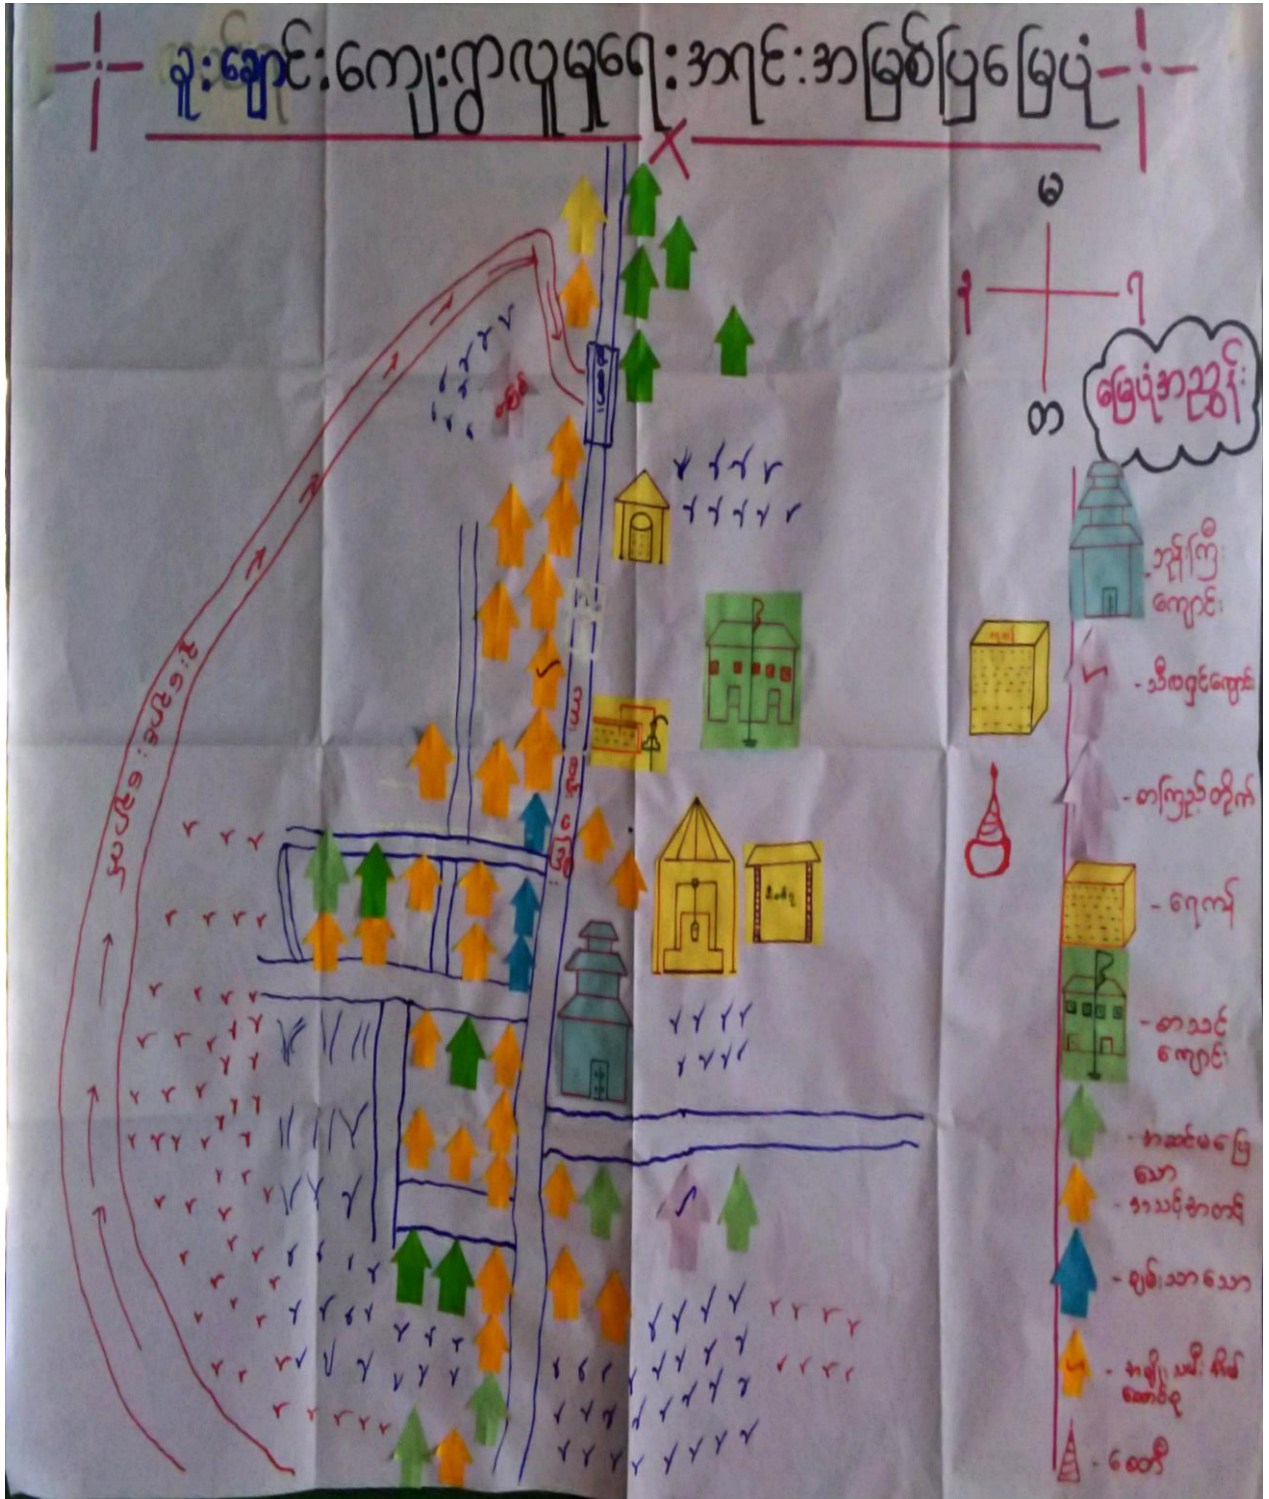 ခူးချောင်းကျေးရွာလူမှုရေးအရင်းအမြစ်ပြမြေပုံ
မ
န
ရ
တ
မြေပုံအညွှန်း
ဘုန်းကြီး
ကျောင်း
- သီလရှင်ကျောင်း
- စာကြည့်တိုက်
- ရေကန်
- စာသင်
ကျောင်း
- အဆင်မပြေ
သော
- အသင့်အတင့်
- ချမ်းသာသော
- အမျိုးသမီးအိမ်
ထောင်စု
- စေတီ